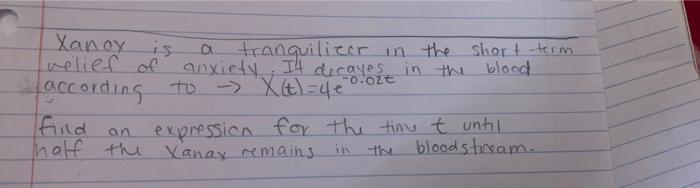 Xanax is a tranquilizer in the short-term
relief of anxiety. It decayes in the blood
according to → X(t)=4e^-0.02t
find an expression for the time t until
half the Xanax remains in the bloodstream.